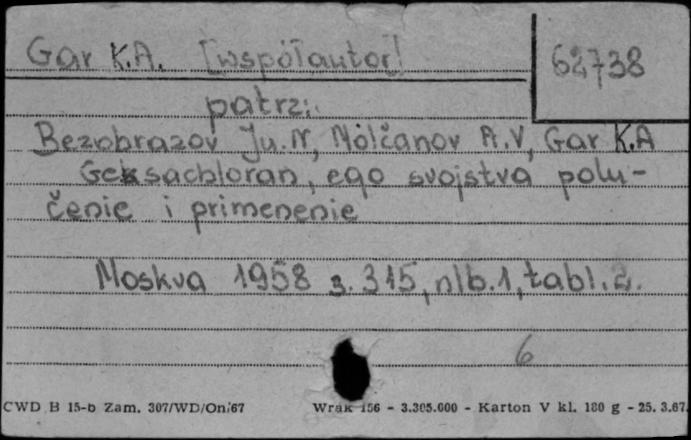 Gar K.A. [współautor] 62738
patrz:
Bezobrazov Ju.N, Mołčanov A.V, Gar K.A
Geksachloran, ego svojstva polu-
čenie i primenenie
Moskva 1958 s. 315, nlb.1, tabl. 2.
6
CWD B 15-b Zam. 307/WD/On/67 Wrak 156 - 3.305.000 - Karton V kl. 180 g - 25. 3.67.